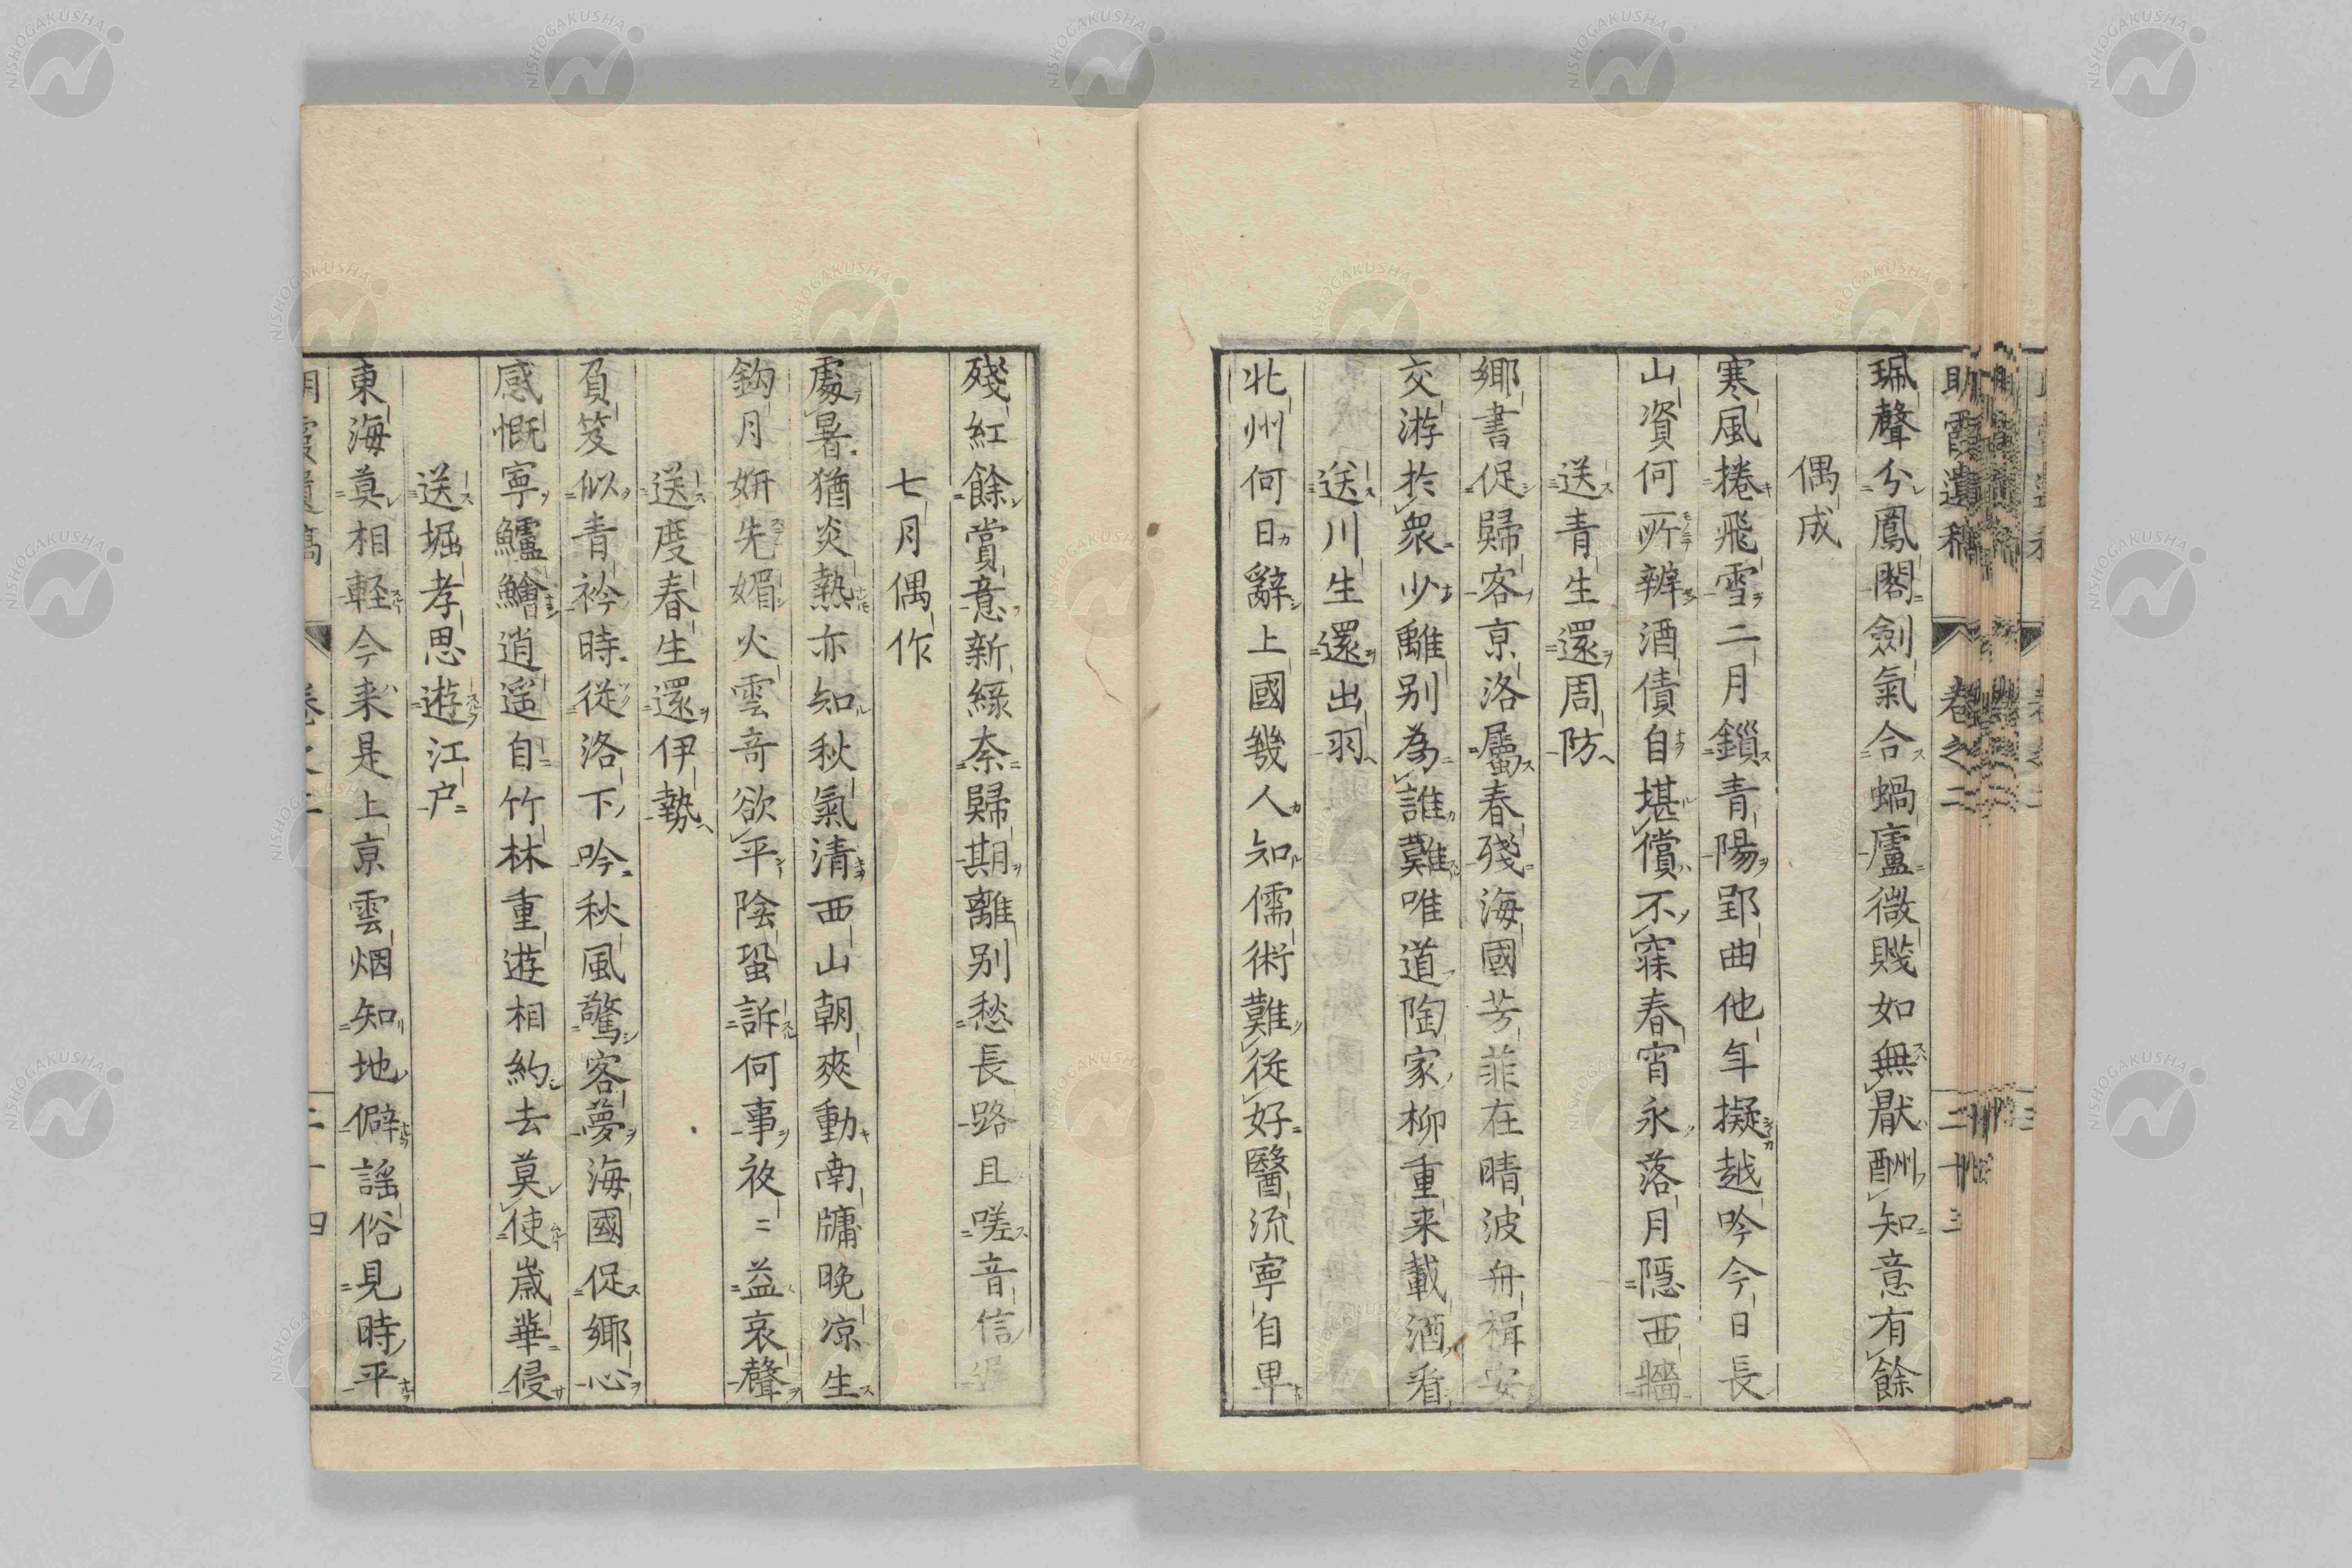 珮聲分鳳閣劍氣合蝸廬微賤如無厭酬知意有餘
偶成
寒風捲飛雪二月鎻青陽郢曲他年擬越吟今日長
山資何所辨酒債自堪償不寐春宵永落月隠西牆
送青生還周防
郷書促歸客京洛屬春殘海國芳菲在晴波舟楫安
交游於衆少離别為誰難唯道陶家柳重来載酒看
送川生還出羽
北州何日辭上國幾人知儒術難從好醫流寧自卑
殘紅餘賞意新緑柰歸期離别愁長路且嗟音信遲
七月偶作
處暑猶炎熱亦知秋氣清西山朝爽動南牗晩凉生
鈎月妍先媚火雲奇欲平陰蛩訴何事夜〻益哀聲
送度春生還伊勢
負笈似青衿時從洛下吟秋風驚客夢海國促郷心
感慨寧鱸鱠逍遥自竹林重遊相約去莫使嵗華侵
送堀孝思遊江户
東海莫相軽今来是上京雲烟知地僻謡俗見時平
卷之二
二十四